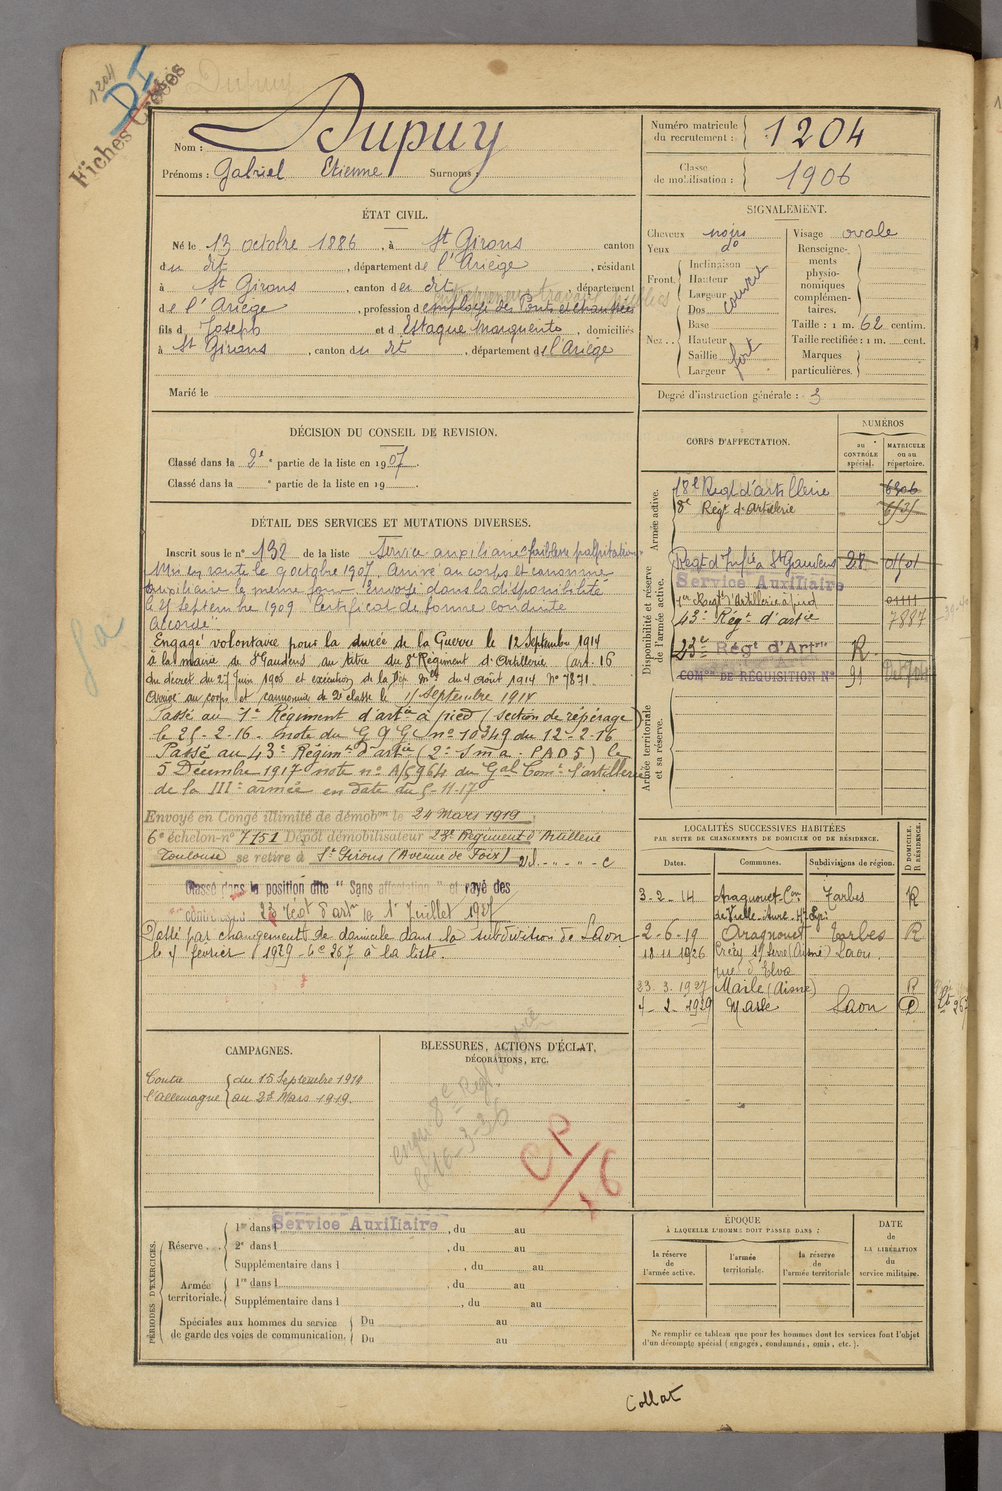 1204
DI
Fiches Créées
Dupuy
Nom : Dupuy
Prénoms : Gabriel Etienne Surnoms :
Numéro matricule du recrutement : 1204
Classe de mobilisation : 1906
ÉTAT CIVIL.
Né le 13 octobre 1886, à St Girons canton
du dit, département de l'Ariège, résidant
à St Girons, canton du dit, département
de l'Ariège, profession d'employé des Ponts et chaussées
fils de Joseph et d'Estaque Marguerite, domiciliés
à St Girons, canton du dit, département de l'Ariège
Marié le
SIGNALEMENT.
Cheveux noirs
Yeux do
Front. Inclinaison Hauteur Largeur couvert
Nez.. Dos Base Hauteur Saillie Largeur fort
Visage ovale
Renseignements physionomiques complémentaires.
Taille : 1 m. 62 centim.
Taille rectifiée : 1 m. cent.
Marques particulières.
Degré d'instruction générale : 3
DÉCISION DU CONSEIL DE REVISION.
Classé dans la 2e partie de la liste en 1907.
Classé dans la e partie de la liste en 19
DÉTAIL DES SERVICES ET MUTATIONS DIVERSES.
Inscrit sous le n° 132 de la liste Service auxiliaire faiblesse palpitations
Mis en route le 9 octobre 1907. Arrivé au corps et canonnier
auxiliaire le même jour. Envoyé dans la disponibilité
le 25 septembre 1909 Certificat de bonne conduite
Accordé
Engagé volontaire pour la durée de la Guerre le 12 Septembre 1914
à la mairie de St Gaudens au titre du 8e Régiment d'Artillerie (art. 16
du décret du 27 Juin 1905 et exécution de la Dép. Melle du 4 Août 1914 N° 7871.
Arrivé au corps et canonnier de 2e classe le 15 Septembre 1914
Passé au 1er Régiment d'artie à pied (section de répérage)
le 25-2-16. Note du G Q G no 10349 du 12-2-16
Passé au 43e Régimt d'artie (2e S m a - PAD5) le
5 Décembre 1917 note n° A/5964 du Gal Comt l'artillerie
de la IIIe armée en date du 5-11-17
Envoyé en Congé illimité de démobon le 24 Mars 1919
6e échelon-n° 7151 Dépôt démobilisateur 23e Régiment d'Artillerie
Toulouse se retire à St Girons (Avenue de Foix)
Classé dans la position dite "Sans affectation" et rayé des
contrôles du 23 régt d'artie le 1er Juillet 1927
Passé par changement de domicile dans la subdivision de Laon
le 4 février 1929 - Le 267 à la liste.
CORPS D'AFFECTATION.
NUMÉROS
au CONTRÔLE spécial.
MATRICULE ou au répertoire.
Armée active.
18e Régt d'artillerie 6306
8e Régt d'Artillerie
Disponibilité et réserve de l'armée active.
Régt d'Infie à St Gaudens
Service Auxiliaire
1er Régt d'Artillerie à pied
43e Régt d'artie 7887
23e Régt d'Artie R.
COMon DE RÉQUISITION N° 91
Armée territoriale et sa réserve.
LOCALITÉS SUCCESSIVES HABITÉES
PAR SUITE DE CHANGEMENTS DE DOMICILE OU DE RÉSIDENCE.
Dates. Communes. Subdivisions de région. D DOMICILE. R RÉSIDENCE.
3-2-14 Aragnouet - Con de Vielle-Aure - Htes Pyr. Tarbes R
2-6-19 Aragnouet Tarbes R
18 11 1926 Crécy sr Serre (Aisne) Laon.
23.3.1927 Marle (Aisne) R
4-2-1929 Marle Laon D
CAMPAGNES.
Contre l'Allemagne du 15 Septembre 1914
au 23 Mars 1919.
BLESSURES, ACTIONS D'ÉCLAT,
DÉCORATIONS, ETC.
CP
PÉRIODES D'EXERCICES.
Réserve... 1re dans l Service Auxiliaire, du au
2e dans l, du au
Supplémentaire dans l, du au
Armée territoriale. 1re dans l, du au
Supplémentaire dans l, du au
Spéciales aux hommes du service de garde des voies de communication. Du au
Du au
ÉPOQUE
À LAQUELLE L'HOMME DOIT PASSER DANS :
la réserve de l'armée active.
l'armée territoriale.
la réserve de l'armée territoriale
DATE de LA LIBÉRATION du service militaire.
Ne remplir ce tableau que pour les hommes dont les services font l'objet
d'un décompte spécial (engagés, condamnés, omis, etc.).
Collat